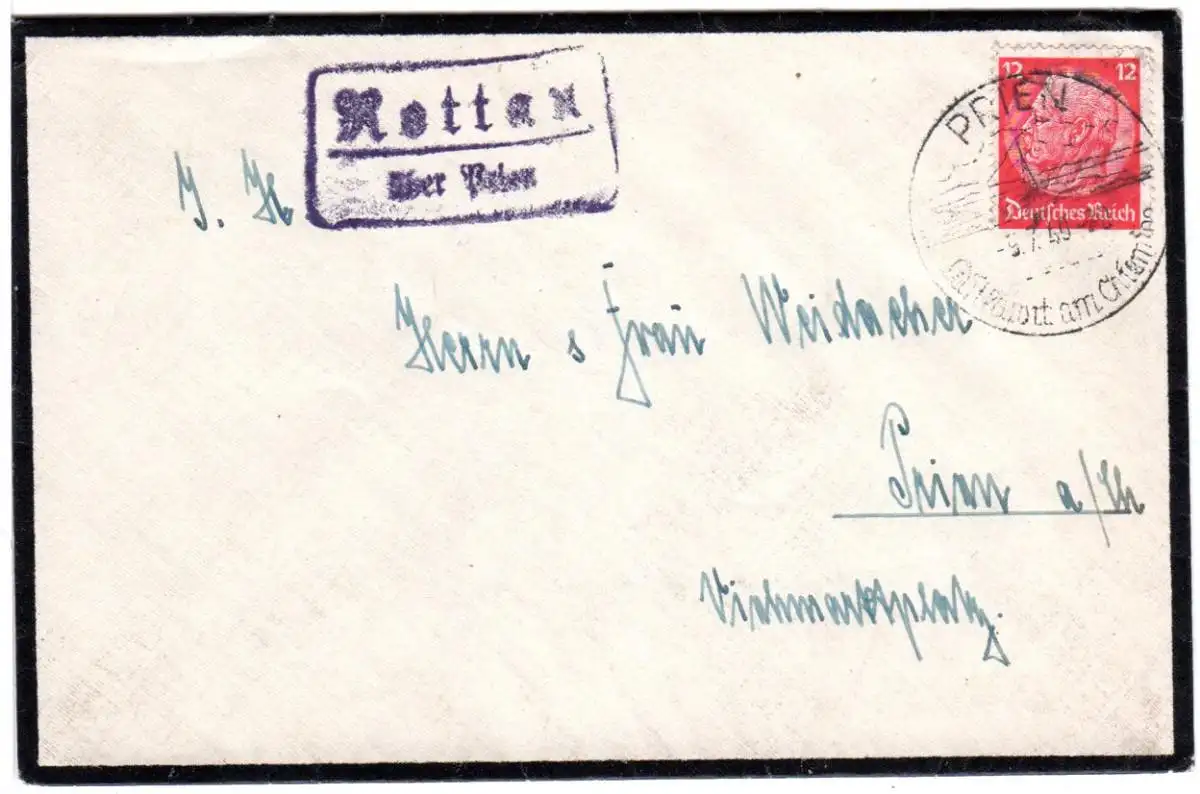 Rottau
über Prien
12 12
Deutsches Reich
PRIEN
-9.7.40
Luftkurort am Chiemsee
J. H.
Herrn & Frau Weidacher
Prien a/Ch
Viehmarktplatz.